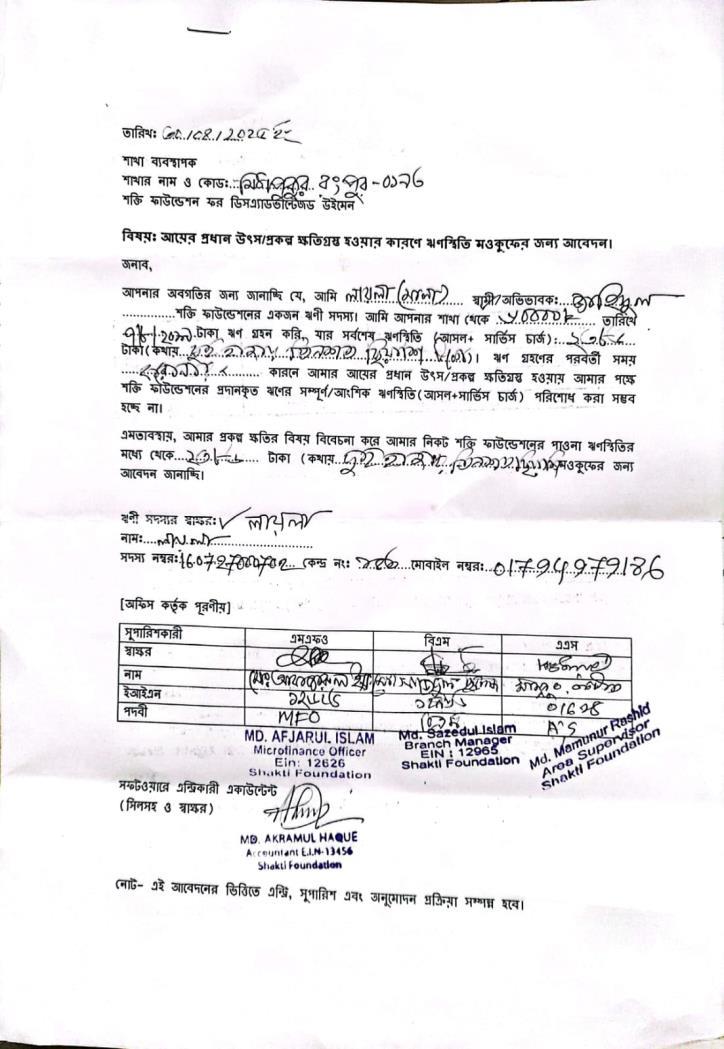 তারিখঃ
শাখা ব্যবস্থাপক
শাখার নাম ও কোডঃ...মিঠাপুকুর, রংপুর-০১৭৬
শক্তি ফাউন্ডেশন ফর ডিসএ্যাডভান্টেজড উইমেন
বিষয়ঃ আয়ের প্রধান উৎস/প্রকল্প ক্ষতিগ্রস্থ হওয়ার কারণে ঋণস্থিতি মওকুফের জন্য আবেদন।
জনাব,
আপনার অবগতির জন্য জানাচ্ছি যে, আমি লায়লা স্বামী/অভিভাবকঃ
শক্তি ফাউন্ডেশনের একজন ঋণী সদস্য। আমি আপনার শাখা থেকে তারিখে
টাকা ঋণ গ্রহন করি, যার সর্বশেষ ঋণস্থিতি (আসল+ সার্ভিস চার্জ)ঃ
টাকা (কথায় দুই হাজার তিনশত)। ঋণ গ্রহণের পরবর্তী সময়
কারনে আমার আয়ের প্রধান উৎস/প্রকল্প ক্ষতিগ্রস্থ হওয়ায় আমার পক্ষে
শক্তি ফাউন্ডেশনের প্রদানকৃত ঋণের সম্পূর্ণ/আংশিক ঋণস্থিতি (আসল+সার্ভিস চার্জ) পরিশোধ করা সম্ভব
হচ্ছে না।
এমতাবস্থায়, আমার প্রকল্প ক্ষতির বিষয় বিবেচনা করে আমার নিকট শক্তি ফাউন্ডেশনের পাওনা ঋণস্থিতির
মধ্যে থেকে টাকা (কথায় দুই হাজার তিনশত মওকুফের জন্য
আবেদন জানাচ্ছি।
ঋণী সদস্যর স্বাক্ষরঃ লায়লা
নামঃ....লায়লা
সদস্য নম্বরঃ কেন্দ্র নং: মোবাইল নম্বরঃ 01794979186
[অফিস কর্তৃক পূরণীয়]
সুপারিশকারী এমএফও বিএম এএস
স্বাক্ষর
নাম
ইআইএন 01628
পদবী MFO বিএম A'S
MD. AFJARUL ISLAM
Microfinance Officer
Ein: 12626
Shakti Foundation
Md. Sazedul Islam
Branch Manager
EIN : 12965
Shakti Foundation
Md. Mamunur Rashid
Area Supervisor
Shakti Foundation
সফটওয়ারে এন্ট্রিকারী একাউন্টেন্ট
(সিলসহ ও স্বাক্ষর)
MD. AKRAMUL HAQUE
Accountant E.I.N-13456
Shakti Foundation
নোট- এই আবেদনের ভিত্তিতে এন্ট্রি, সুপারিশ এবং অনুমোদন প্রক্রিয়া সম্পন্ন হবে।